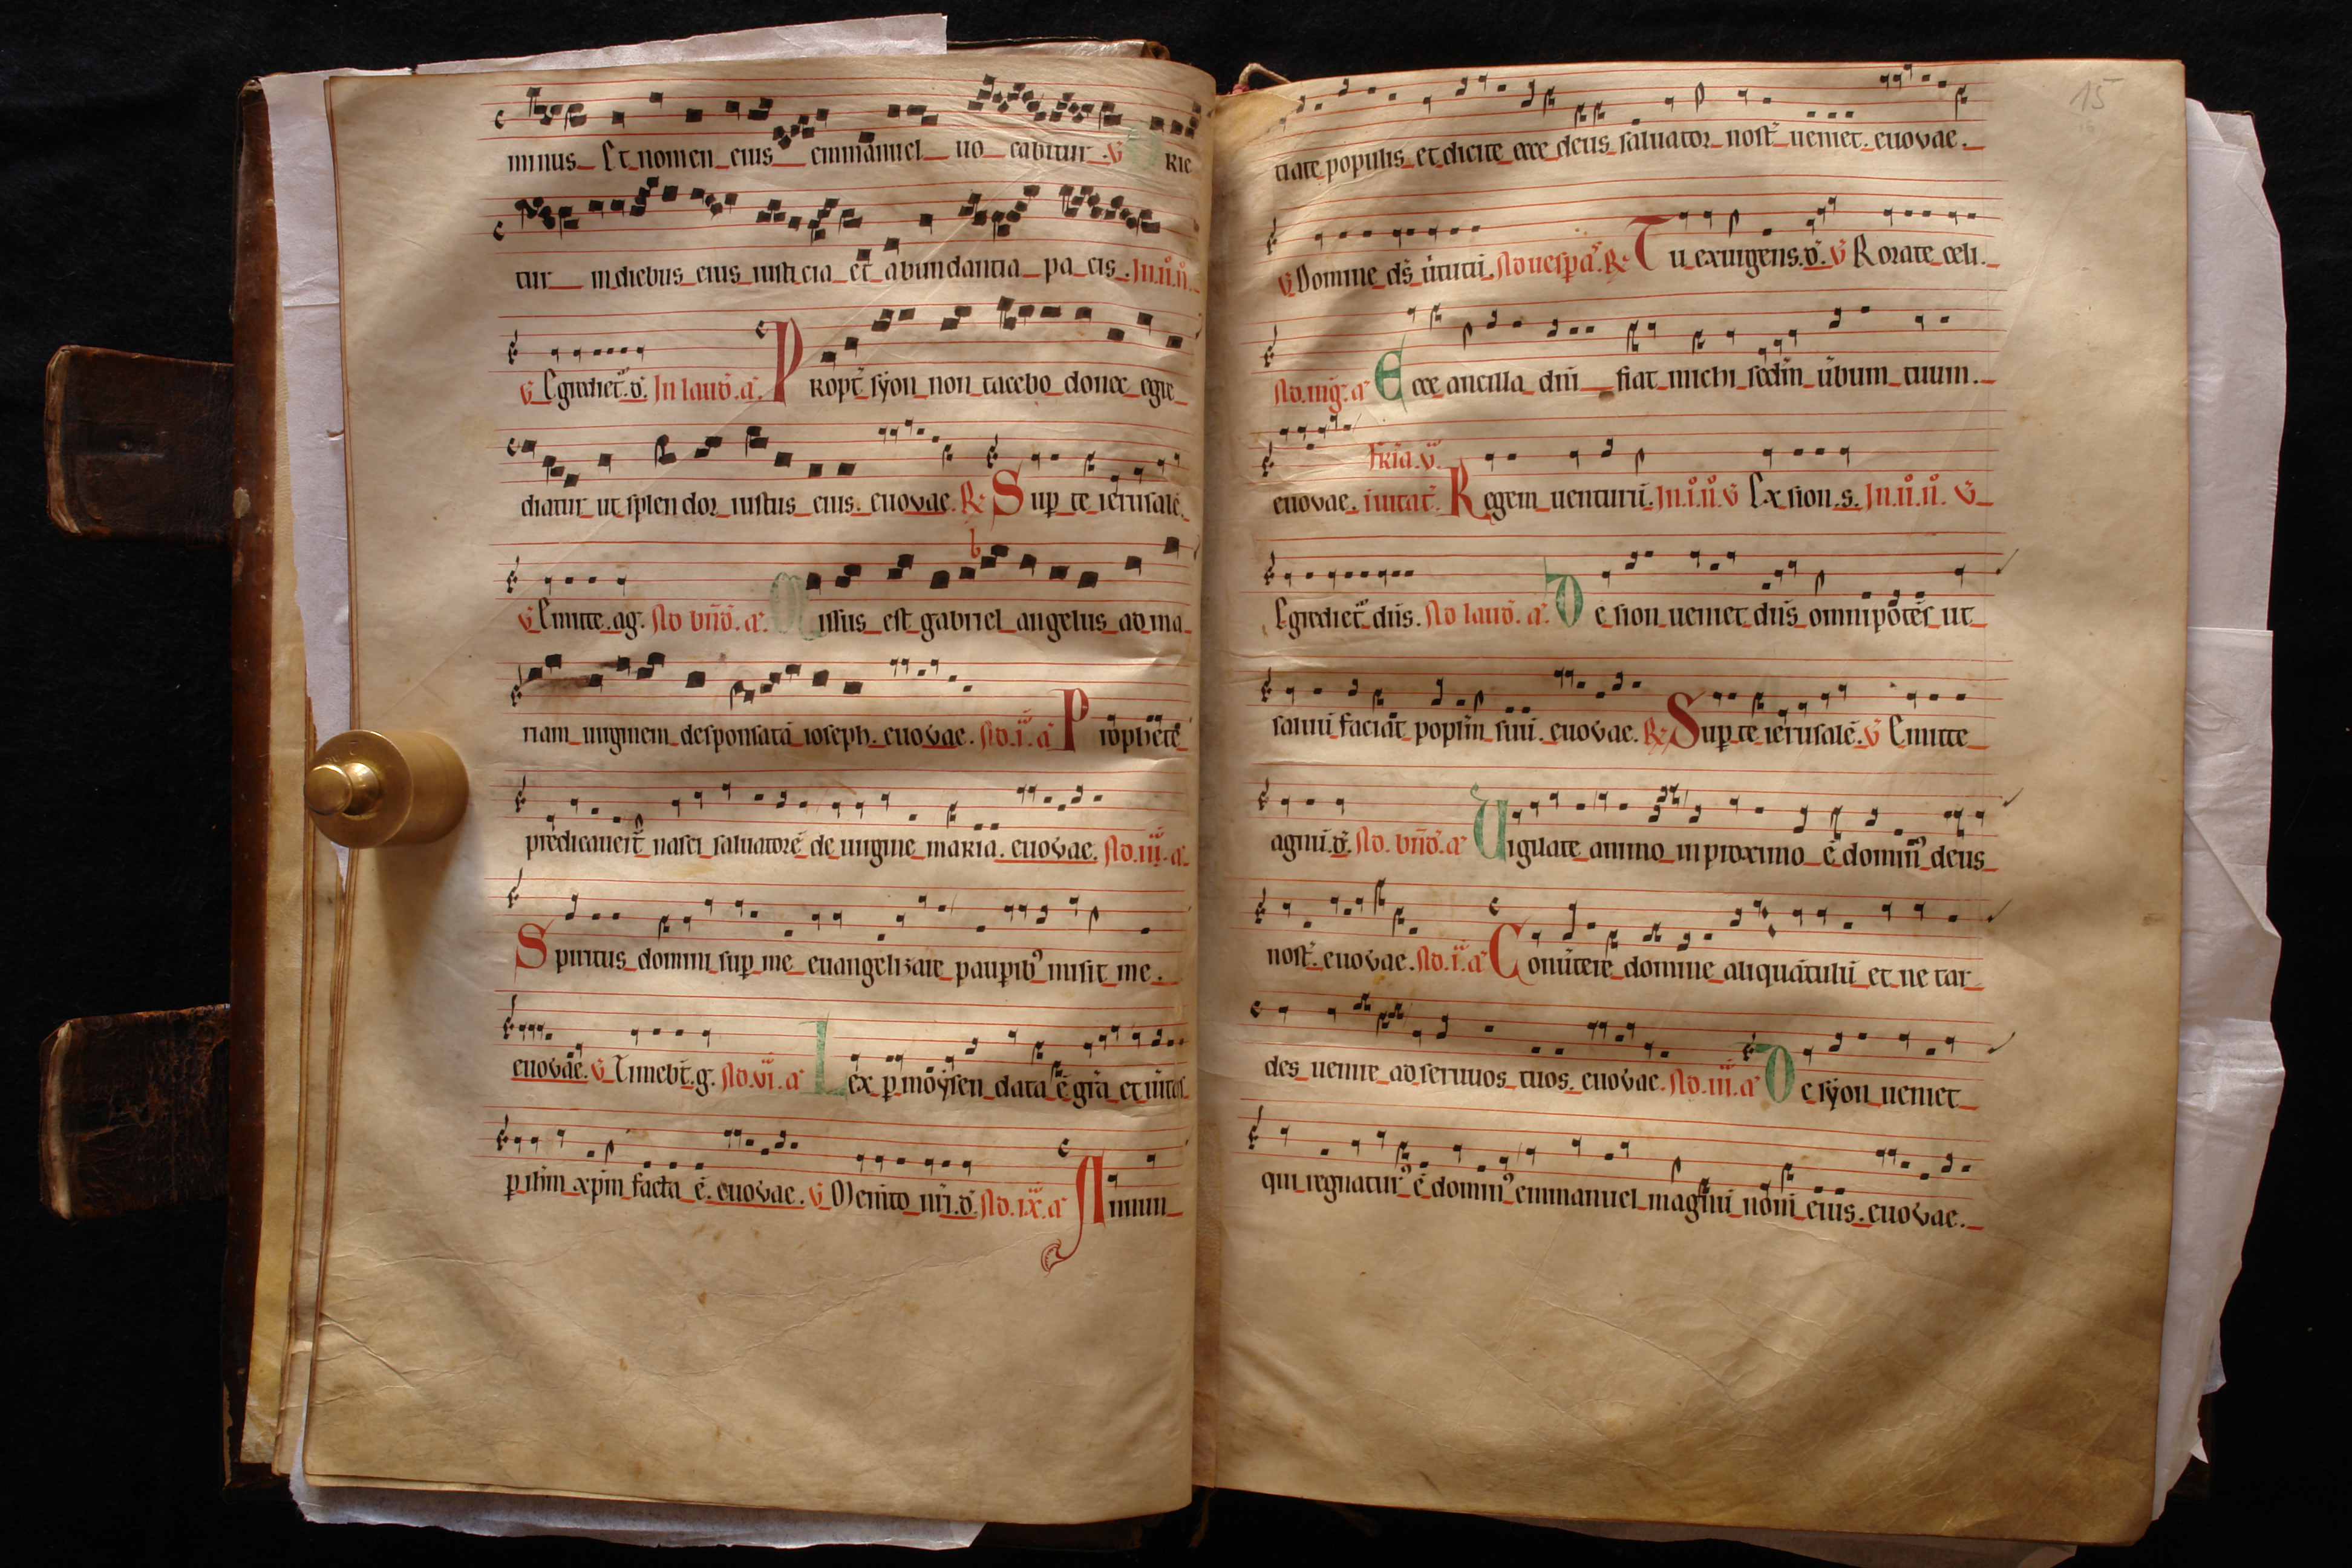 minus Et nomen eius emmanuel uo cabitur . V Orie
tur in diebus eius iusticia et abundantia pa cis . In.ii.n.
V Egrediet̃.d. In laud̃.a. Propt̃ syon non tacebo donec egre
diatur ut splen dor iustus eius. euovae. R. Sup te ierusalẽ.
V Emitte.ag. Ad bñd̃.a. Missus est gabriel angelus ad ma
riam uirginem desponsatã ioseph. euovae. Ad.i.a Prophete
predicauerũt nasci saluatorẽ de uirgine maria. euovae. Ad.iii.a.
Spiritus domini sup me euangelizare paupib9 misit me .
euovae. V Timebt̃.g. Ad.vi.a Lex p moysen data ẽ grã et uitas
p ihm xpm facta ẽ. euovae. V Memto nri.d. Ad.ix.a Annun
15
tiate populis et dicite ecce deus saluator nost̃ ueniet. euovae.
V Domine ds̃ uirtutũ. Ad uesp̃a. R. Tu exurgens.d. V Rorate celi.
Ad.mg.a Ecce ancilla dñi fiat michi scdm ũbum tuum.
euovae. Fria.v. iuitat̃. Regem uenturũ. In.i.n. V Ex sion.s. In.ii.n. V
Egrediet̃ dñs. Ad laud̃.a. De sion ueniet dñs omnipotẽs ut
saluũ faciat poplm suũ. euovae. R. Sup te ierusalẽ. V Emitte
agnũ.d. Ad. bñd̃.a Uigilate animo in proximo ẽ domin9 deus
nost̃. euovae. Ad.i.a Conũtere domine aliquãtulũ et ne tar
des uenire ad seruuos tuos. euovae. Ad.iii.a De syon ueniet
qui regnatur9 ẽ domin9 emmanuel magnũ nom̃ eius. euovae.